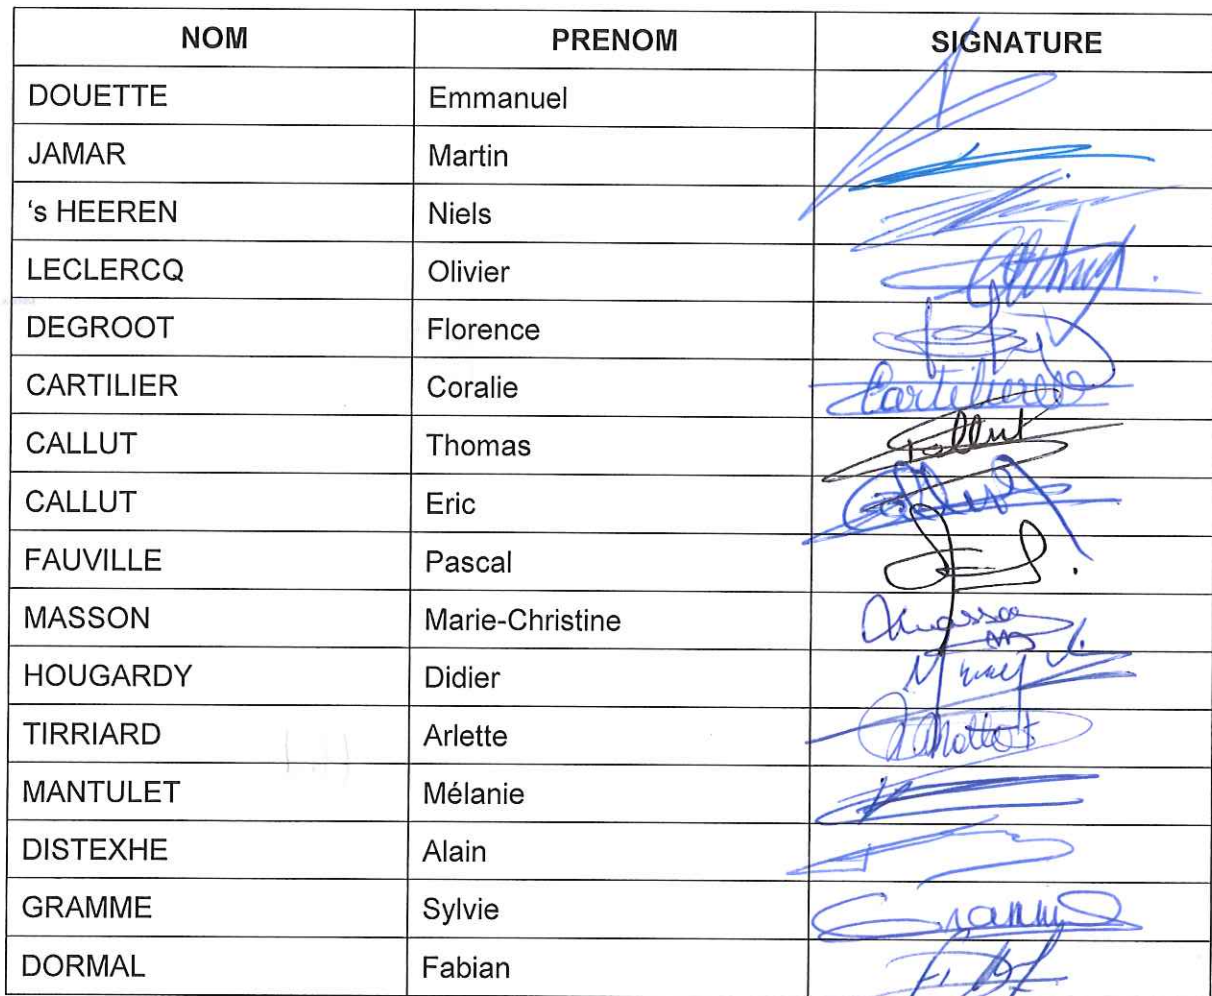 NOM PRENOM SIGNATURE
DOUETTE Emmanuel
JAMAR Martin
‘s HEEREN Niels
LECLERCQ Olivier
DEGROOT Florence
CARTILIER Coralie
CALLUT Thomas Callut
CALLUT Eric
FAUVILLE Pascal
MASSON Marie-Christine Masson
HOUGARDY Didier
TIRRIARD Arlette
MANTULET Mélanie
DISTEXHE Alain
GRAMME Sylvie Gramme
DORMAL Fabian